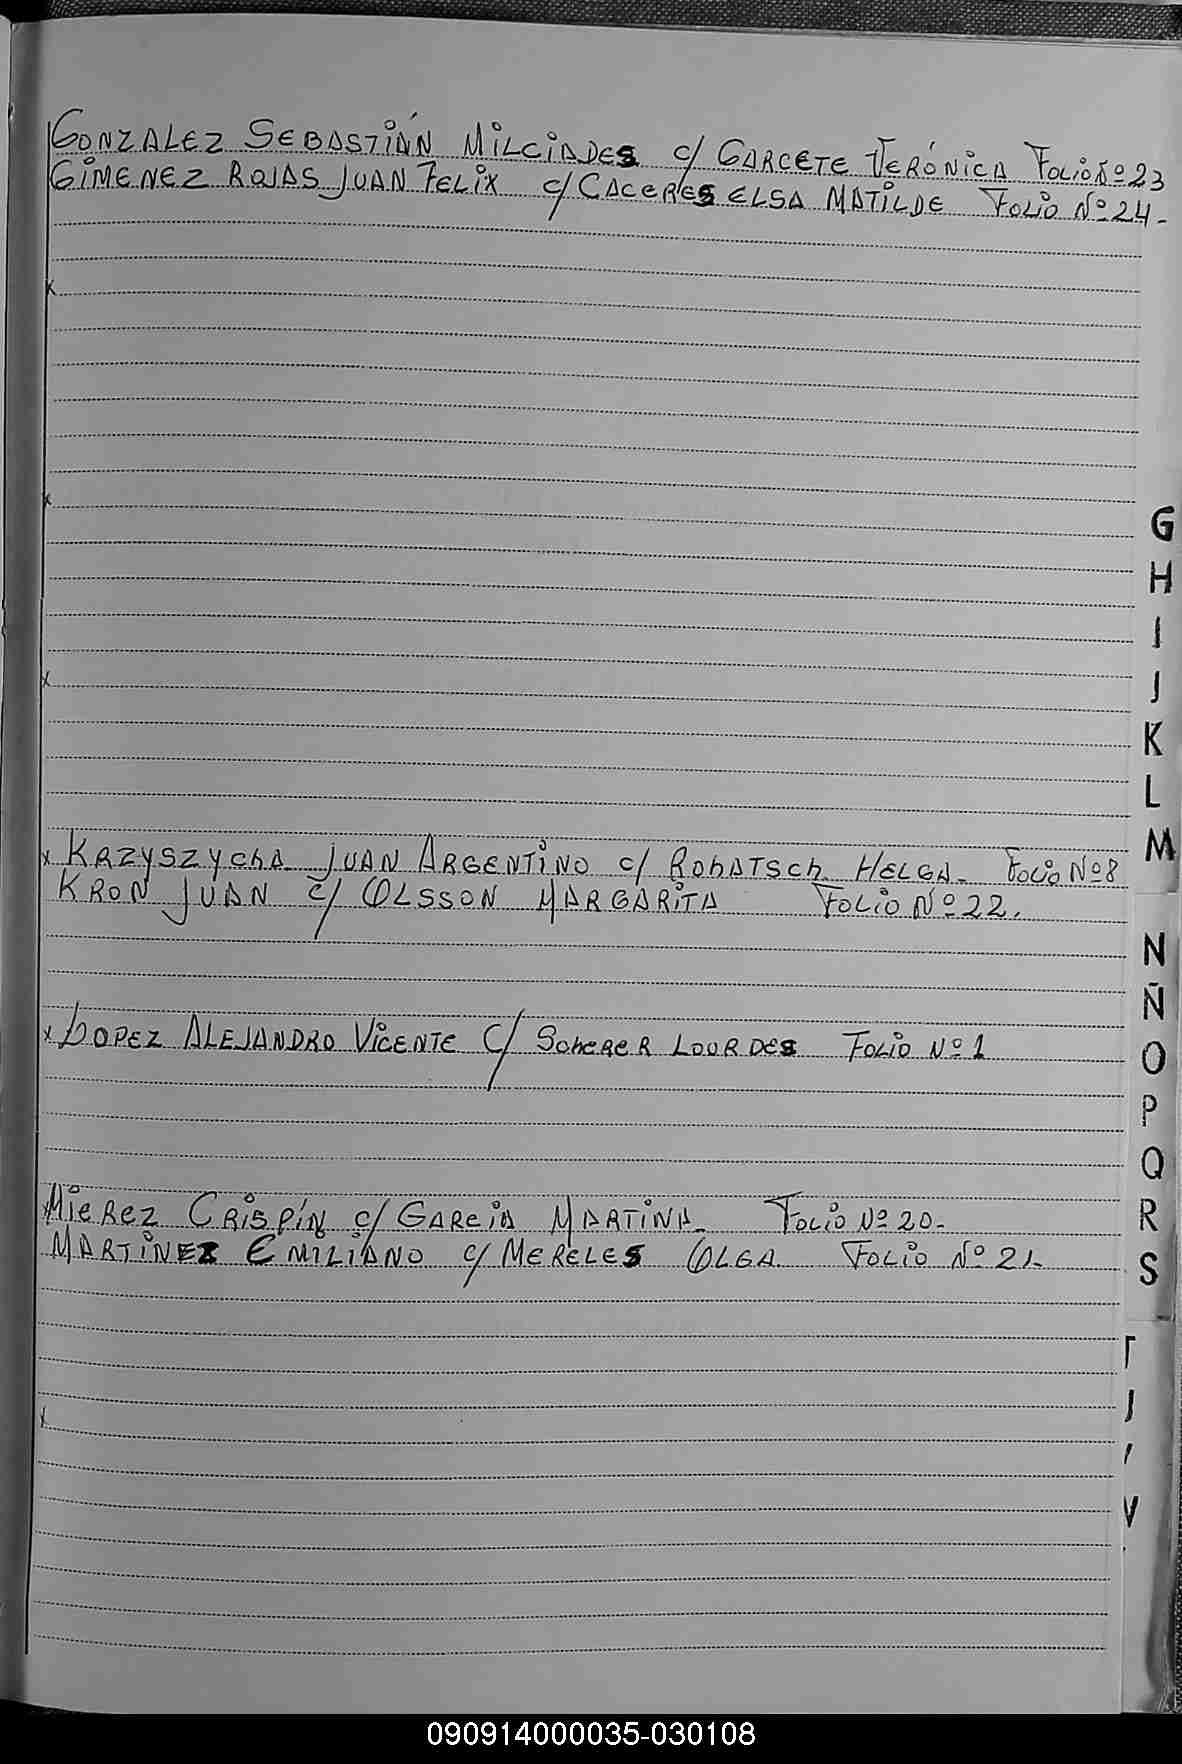 GONZALEZ SEBASTIÁN MILCIADES c/ GARCETE VERÓNICA FOLIO Nº 23
GIMENEZ ROJAS JUAN FELIX c/ CACERES ELSA MATILDE FOLIO Nº 24-
x
x
x
x KRZYSZYCHA JUAN ARGENTINO c/ ROHATSCH HELGA- FOLIO Nº 8
KRON JUAN c/ OLSSON MARGARITA FOLIO Nº 22.
x LOPEZ ALEJANDRO VICENTE C/ SCHERER LOURDES FOLIO Nº 1
MIEREZ CRISPÍN c/ GARCIA MARTINA- FOLIO Nº 20-
MARTINEZ EMILIANO c/ MERELES OLGA FOLIO Nº 21-
x
G
H
I
J
K
L
M
N
Ñ
O
P
Q
R
S
090914000035-030108